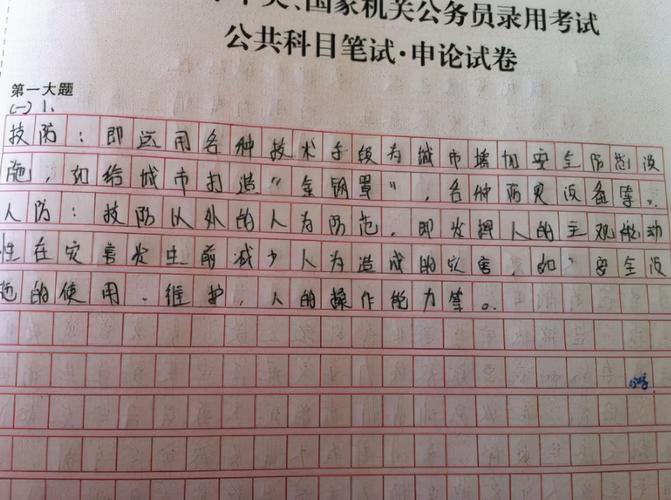 中央、国家机关公务员录用考试
公共科目笔试·申论试卷
第一大题
(一) 1、
技防：即运用各种技术手段为城市增加安全防范设
施，如给城市打造“金钢罩”，各种雨具设备等。
人防：技防以外的人为防范，即发挥人的主观能动
性在灾害发生前减少人为造成的灾害，如：安全设
施的使用、维护，人的操作能力等。